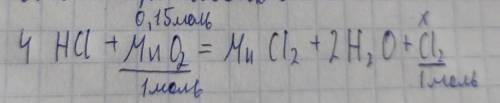 0,15моль x
4 HCl + MnO2 = MnCl2 + 2H2O + Cl2
1моль 1моль